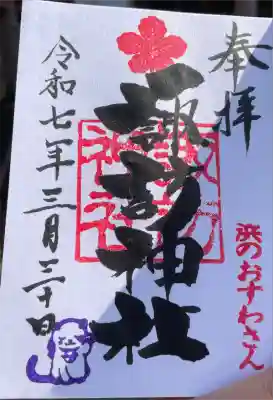 奉拝
浜のおすわさん
諏訪神社
令和七年三月三十日